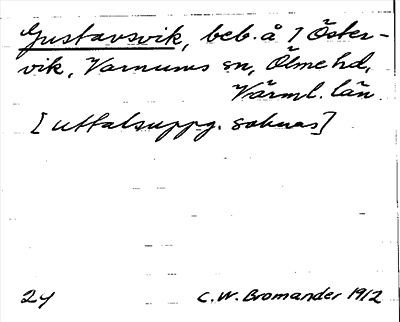 Gustavsvik, beb. å 1 Öster-
vik, Varnums sn, Ölme hd,
Värml. län.
[uttalsuppg. saknas]
24 C.W. Bromander 1912